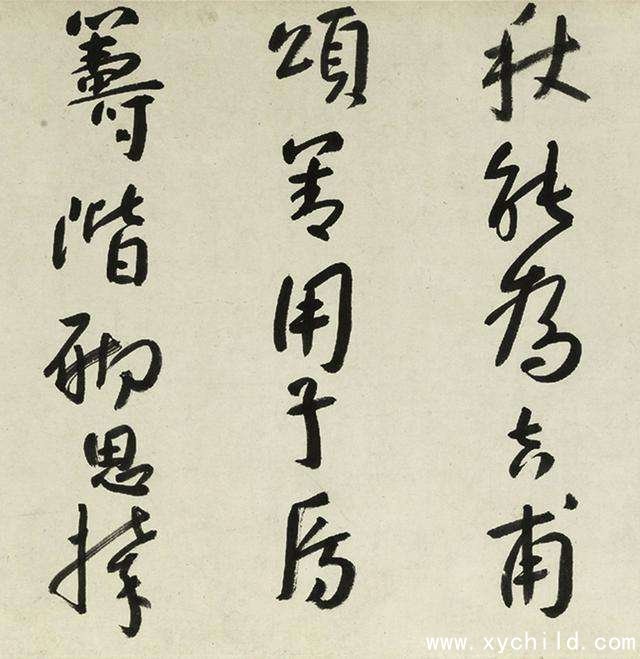 秋能為吉甫
頌善用子房
籌階砌思
www.xychild.com